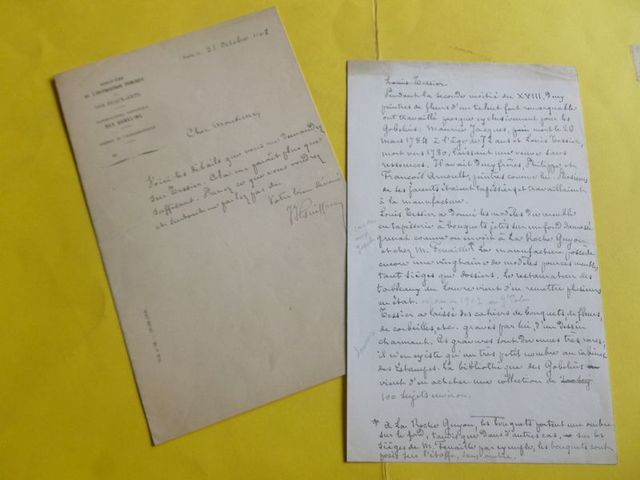 MINISTÈRE
DE L'INSTRUCTION PUBLIQUE
DES BEAUX-ARTS
DES GOBELINS
le 25 Octobre
Cher Monsieur,
Voici les détails que vous me demandez
sur Tessier. Cela me paraît plus que
suffisant. Prenez ce que vous voudrez
et surtout ne parlez pas de
Votre bien dévoué
J Guiffrey
Louis Tessier
Pendant la seconde moitié du XVIII, deux
peintres de fleurs d'un talent fort remarquable
ont travaillé presque exclusivement pour les
Gobelins. Maurice Jacques, mort le 20
mars 1784 à l'âge de 72 ans et Louis Tessier,
mort vers 1780, laissant une veuve sans
ressources. Il avait deux frères, Philippe et
François Arnoult, peintres comme lui. Plusieurs
de ses parents étaient tapissiers et travaillaient
à la manufacture.
Louis Tessier a donné les modèles du meuble
en tapisserie à bouquets jetés sur un fond damassé
comme on en voit à La Roche Guyon
et chez M. Fenaille. La manufacture possède
encore une vingtaine de modèles pour ces meubles,
tant sièges que dossiers. Le restaurateur des
tableaux du Louvre vient d'en remettre plusieurs
en état.
Tessier a laissé des cahiers de bouquets, de fleurs,
de corbeilles, etc. gravés par lui, d'un dessin
charmant. Ces gravures sont devenues très rares;
il n'en existe qu'un très petit nombre au Cabinet
des Estampes. La bibliothèque des Gobelins
vient d'en acheter une collection de
100 sujets environ.
* A La Roche Guyon, les bouquets portent une ombre
sur le fond, tandis que dans d'autres cas, sur les
sièges de M. Fenaille par exemple, les bouquets sont
posés sur l'étoffe, sans ombre.